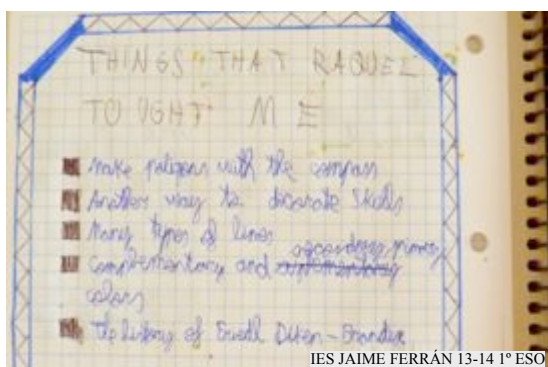 THINGS THAT RAQUEL
TOUGHT ME
make poligons with the compass
Another way to decorate skulls
Many types of lines
complementary and secondary, primary
colors
The history of Friedl Dicker-Brandeis
IES JAIME FERRÁN 13-14 1º ESO